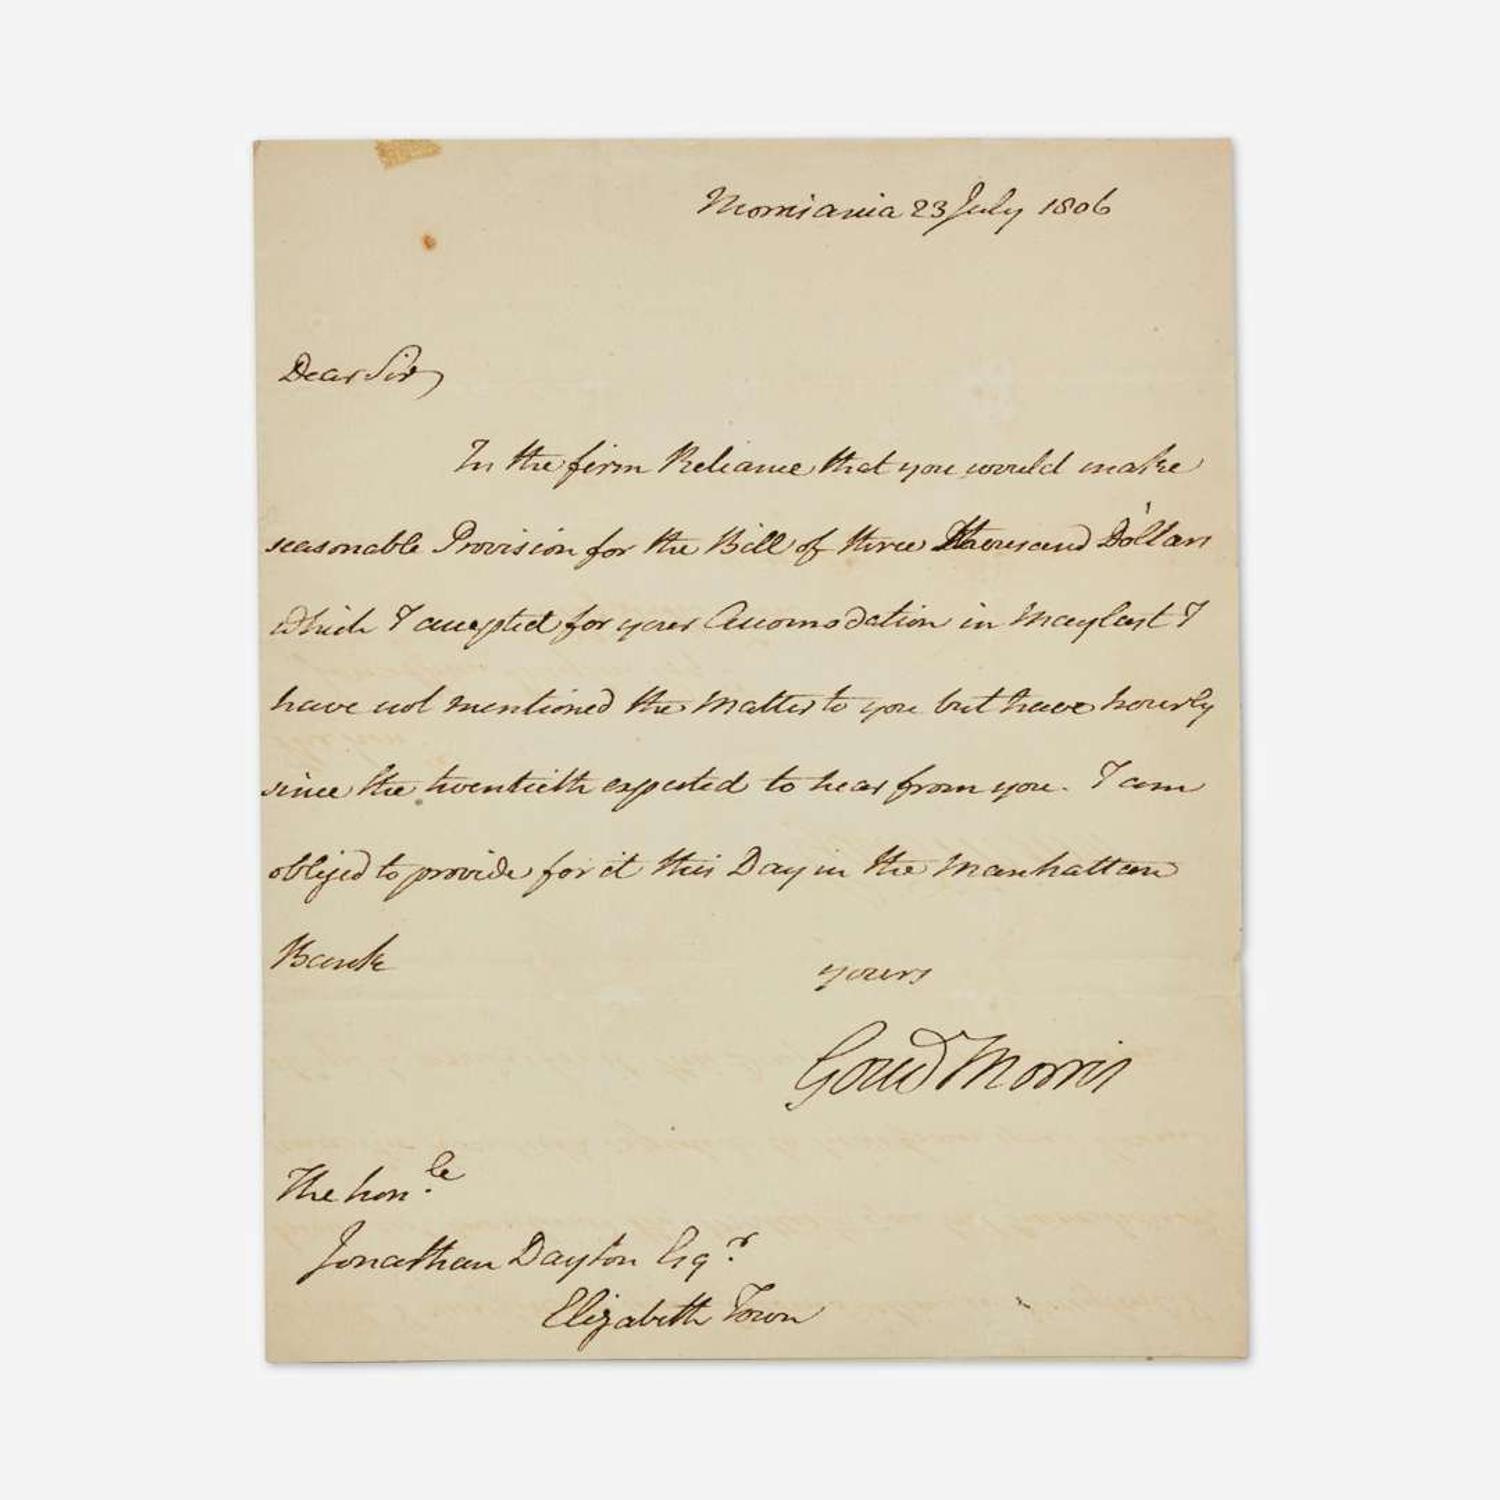 Morrisania 23 July 1806
Dear Sir
In the firm Reliance that you would make
seasonable Provision for the Bill of three Thousand Dollars
which I accepted for your Accomodation in May last I
have not mentioned the Matter to you but have hourly
since the twentieth expected to hear from you. I am
obliged to provide for it this Day in the Manhattan
Bank
yours
Gouv Morris
The hon.le
Jonathan Dayton Esq.r
Elizabeth Town